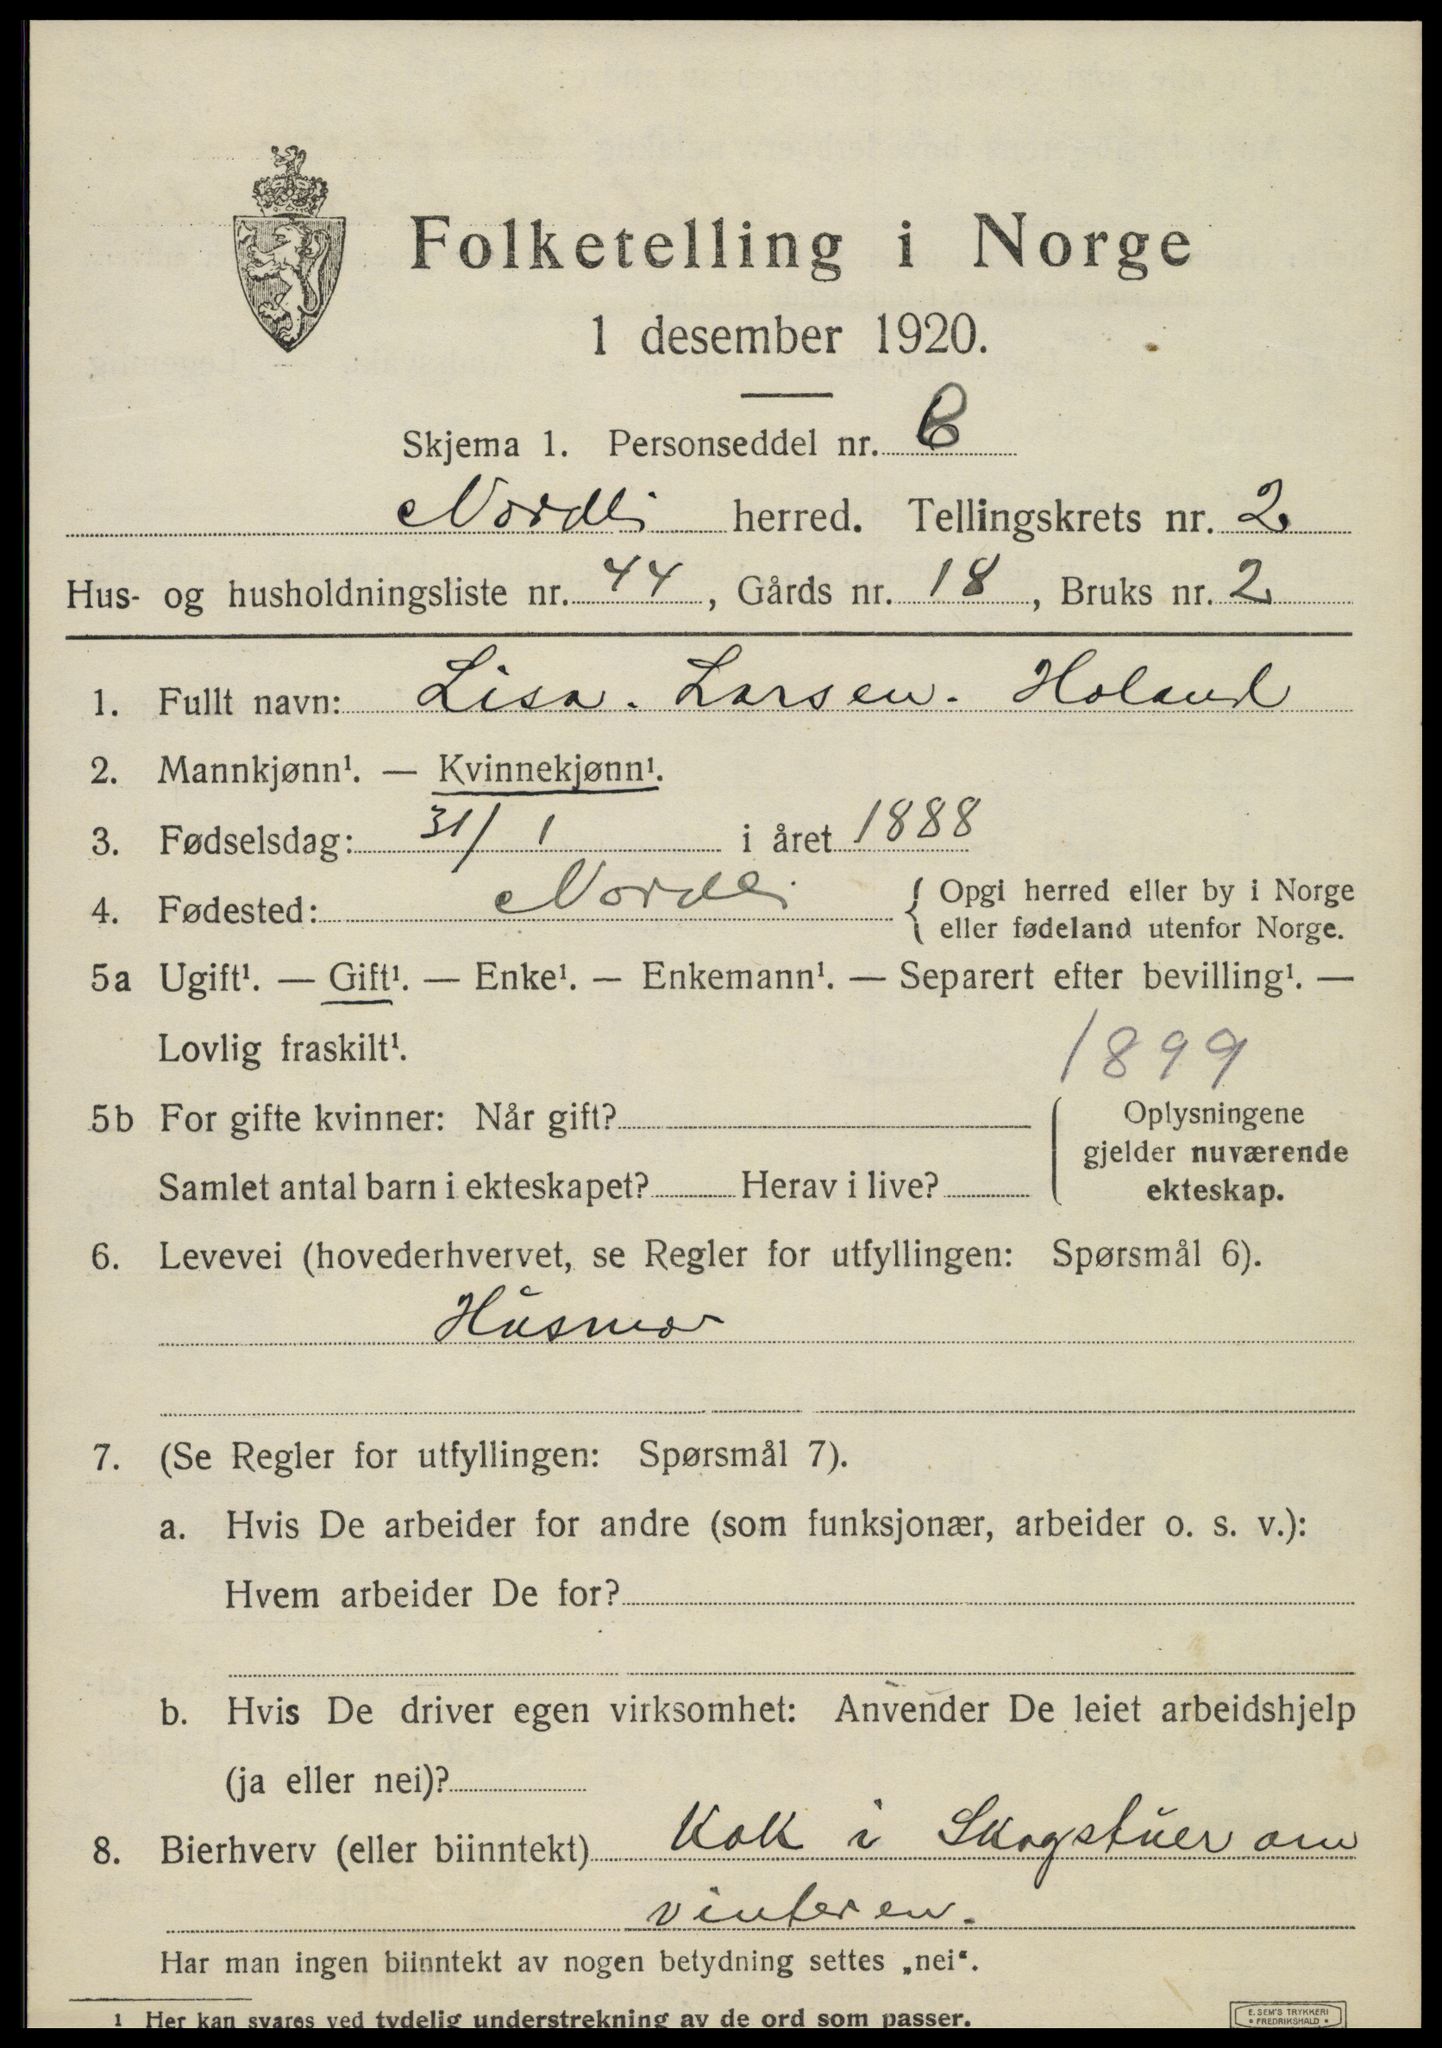 Folketelling i Norge
1 desember 1920.
Skjema 1. Personseddel nr.
Nordli herred. Tellingskrets nr. 2
Hus- og husholdningsliste nr. 44, Gårds nr. 18, Bruks nr. 2
1. Fullt navn: Lisa. Larsen. Holand
2. Mannkjønn¹. — Kvinnekjønn¹.
3. Fødselsdag: 31/1 i året 1888
4. Fødested: Nordli { Opgi herred eller by i Norge
eller fødeland utenfor Norge.
5a Ugift¹. — Gift¹. — Enke¹. — Enkemann¹. — Separert efter bevilling¹. —
Lovlig fraskilt¹.
1899
5b For gifte kvinner: Når gift?
Samlet antal barn i ekteskapet? Herav i live?
Oplysningene
gjelder nuværende
ekteskap.
6. Levevei (hovederhvervet, se Regler for utfyllingen: Spørsmål 6).
Husmor
7. (Se Regler for utfyllingen: Spørsmål 7).
a. Hvis De arbeider for andre (som funksjonær, arbeider o. s. v.):
Hvem arbeider De for?
b. Hvis De driver egen virksomhet: Anvender De leiet arbeidshjelp
(ja eller nei)?
8. Bierhverv (eller biinntekt) Kok i Skogstuer om
vinteren.
Har man ingen biinntekt av nogen betydning settes „nei“.
¹ Her kan svares ved tydelig understrekning av de ord som passer.
E. SEM'S TRYKKERI
• FREDRIKSHALD •